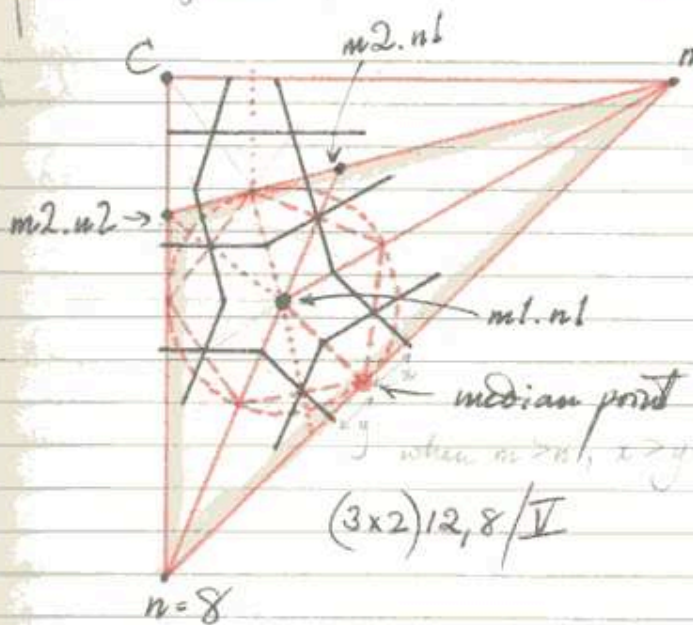 m2.n1
C
m2.n2→
m1.n1
x
median point
x y
when m>n, x>y
(3x2)12,8/V
n=8